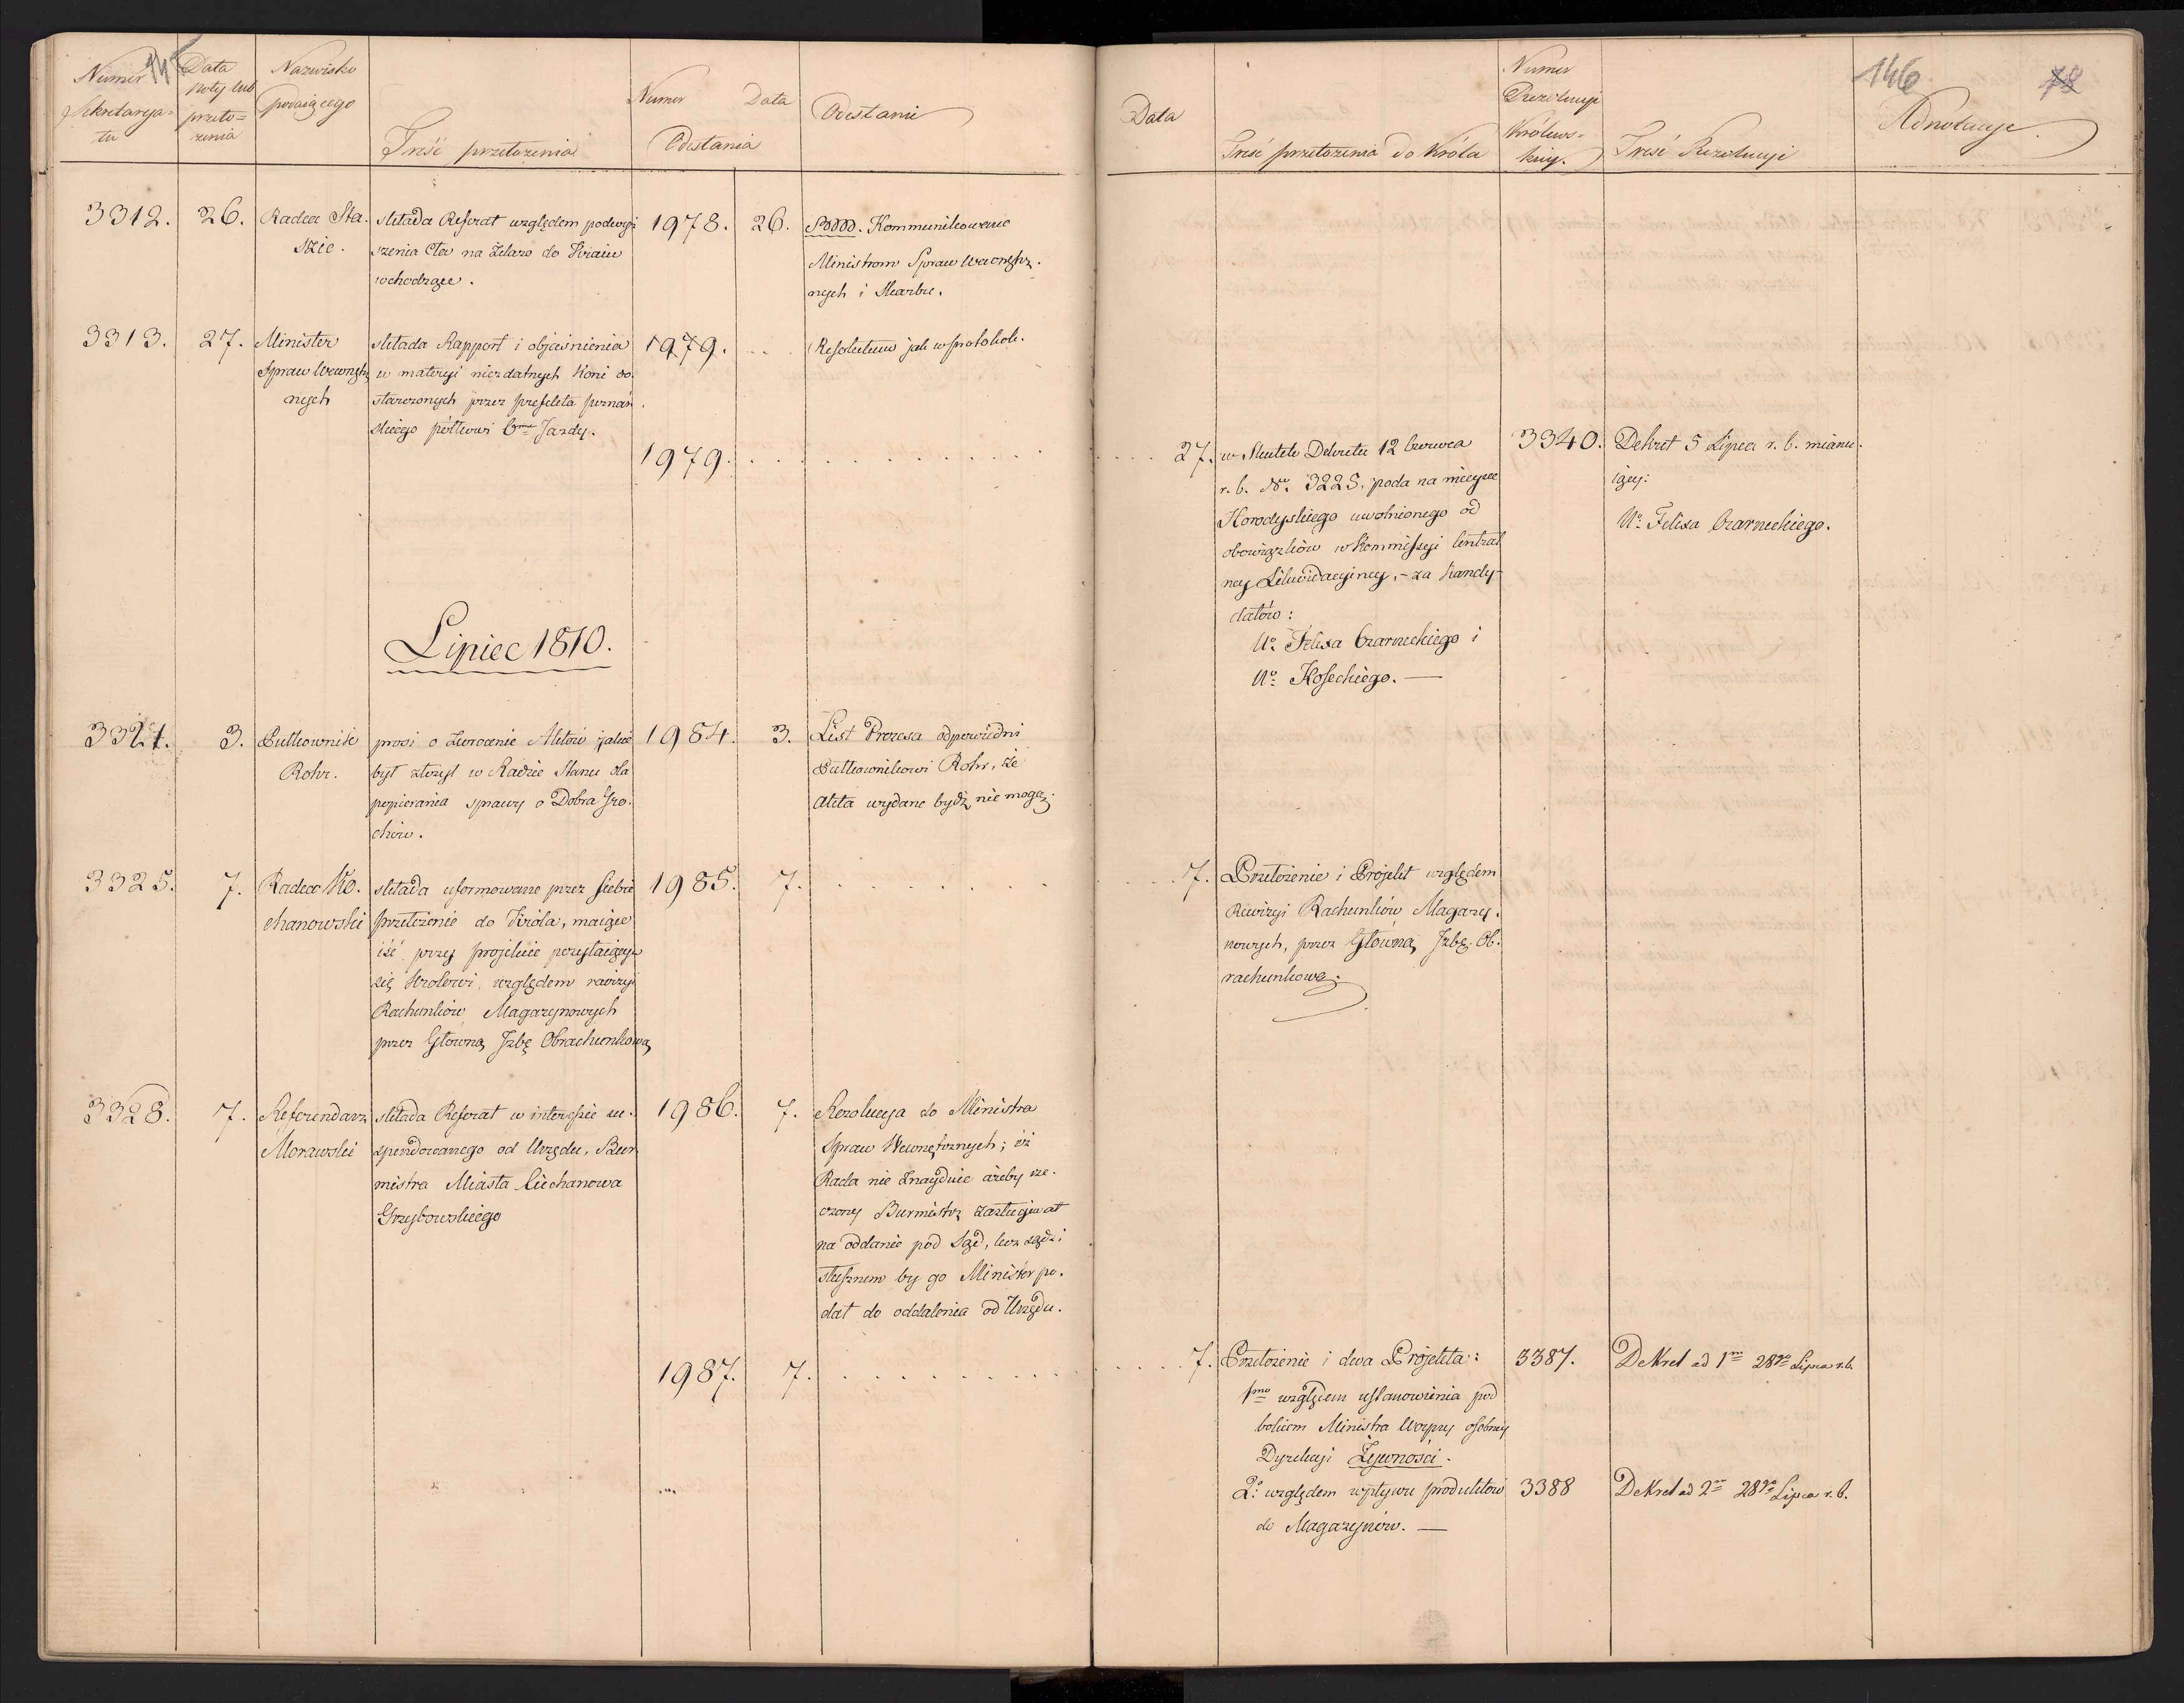 145
Numer
Sekretarya-
tu
Data
Noty lub
przeło=
żenia
Nazwisko
podaiącego
Treść przełożenia
Numer Data
Odesłania
Odesłanie
3312. 26. Radca Sta-
szic.
składa Referat względem podwyż
szenia Cła na Żelazo do Kraiu
wchodzące.
1978. 26.
Kommunikowane
Ministrom Spraw Wewnętrz.
nych i Skarbu.
3313. 27. Minister
Spraw Wewnętrz
nych
składa Rapport i objaśnienia
w materyi niezdatnych Koni do.
starczonych przez prefekta poznań.
skiego półkowi 6me Jazdy.
1979. . .
Resolutum jak w protokole.
1979. . . .
Lipiec 1810.
3324. 3. Pułkownik
Rohr.
prosi o Zwrocenie Aktów jakie
był złożył w Radzie Stanu dla
popierania sprawy o Dobra Gro.
chów.
1984. 3.
List Prezesa odpowiedni
Pułkownikowi Rohr, że
Akta wydane bydź nie mogą.
3325. 7. Radca Ko.
chanowski
składa uformowane przez siebie
przełożenie do Króla, maiące
iść przy projekcie
się Krolowi, względem rewizyi
Rachunków Magazynowych
przez Główną Jzbę Obrachunkową
1985. 7. . . .
3328. 7. Referendarz
Morawski
składa Referat w interessie su.
spendowanego od Urzędu, Bur
mistra Miasta Ciechanowa
Grzybowskiego
1986. 7.
Rezolucya do Ministra
Spraw Wewnętrznych; iż
Rada nie Znayduie ażeby rze.
czony Burmistrz zasługiwał
na oddanie pod Sąd, lecz sądzi
słusznem by go Minister po.
dał do oddalenia od Urzędu.
1987. 7. . . .
146
78
Data
Treść przełożenia do Króla
Numer
Rezolucyi
Królews=
kiey.
Treść Rezolucyi
Adnotacye.
27. w Skutek Dekretu 12 Czerwca
r. b. No. 3225. poda na mieysce
Horodyskiego uwolnionego od
obowiązków w Kommissyi Central
ney Likwidacyiney, - za Kandy-
datów:
Uo. Felixa Czarneckiego i
Uo. Kosseckiego. —
3340. Dekret 5 Lipca r. b. mianu.
iący:
Uo. Felixa Czarneckiego.
7. Przełożenie i Projekt względem
Rewizyi Rachunków Magazy.
nowych, przez Główną Jzbę Ob.
rachunkową.
7. Przełożenie i dwa Projekta:
1mo względem ustanowienia pod
bokiem Ministra Woyny osobney
Dyrekcyi Żywności.
3387. Dekret ad 1m 28go Lipca r. b.
2o względem wpływu produktów
do Magazynów. —
3388 Dekret ad 2m 28go Lipca r. b.